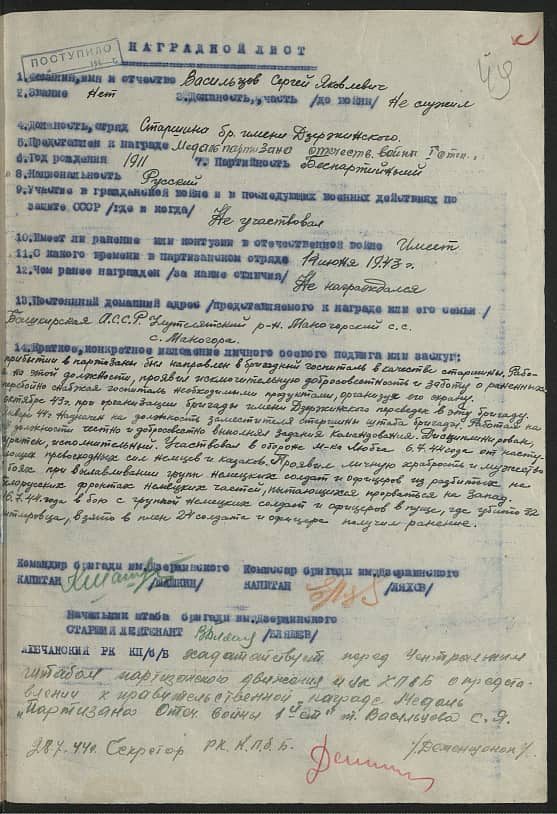 ПОСТУПИЛО
НАГРАДНОЙ ЛИСТ
49
1.Фамилия,имя и отчество Васильцов Сергей Яковлевич
2.Звание нет 3.Должность, часть /до войны/ Не служил
4.Должность,отряд Старшина бр. имени Дзержинского.
5.Представлен к награде Медаль партизана отечеств. войны I степ.
6.Год рождения 1911 7. Партийность Беспартийный
8.Национальность Русский
9.Участие в гражданской войне и в последующих военных действиях по
защите СССР /где и когда/ Не участвовал
10.Имеет ли ранение или контузии в отечественной войне Имеет
11.С какого времени в партизанском отряде 14 июня 1943 г.
12.Чем ранее награжден /за какие отличия/ Не награждался
13.Постоянный домашний адрес /представляемого к награде или его семьи/
Башкирская А.С.С.Р. р-н. Маногорский с.с.
с. Маногора.
14.Краткое,конкретное изложение личного боевого подвига или заслуг:
прибытии в партизаны был направлен в бригадный госпиталь в качестве старшины. Рабо-
на этой должности, проявил исключительную добросовестность и заботу о раненных,
снабжая госпиталь необходимыми продуктами, организуя его охрану.
октябре 43г. при организации бригады имени Дзержинского переведен в эту бригаду.
44г назначен на должность заместителя старшины штаба бригады. Работая на
должности честно и добросовестно выполнял задания командования. Дисциплинирован,
исполнительный. Участвовал в обороне м-ка Любча 6.7.44 года от насту-
пающих превосходных сил немцев и казаков. Проявил личную храбрость и мужество
боях при вылавливании групп немецких солдат и офицеров из разбитых на
Белорусских фронтах немецких частей, пытающихся прорваться на Запад.
6.7.44 года в бою с группой немецких солдат и офицеров в пуще, где убито 32
гитлеровца, взято в плен 24 солдата и офицера получил ранение.
Командир бригады им.Дзержинского Комиссар бригады им.Дзержинского
КАПИТАН /МАШКИН/ КАПИТАН /ЛЯХОВ/
Начальник штаба бригады им.Дзержинского
СТАРШИЙ ЛЕЙТЕНАНТ /КЛЯШЕВ/
ЛЮБЧАНСКИЙ РК КП/б/Б ходатайствует перед Центральным
штабом партизанского движения и ЦК КП/б/Б о предста-
влении к правительственной награде Медаль
"Партизана Отеч войны 1й ст" т. Васильцова С.Я.
28.7.44г. Секретарь РК К.П.б.Б.